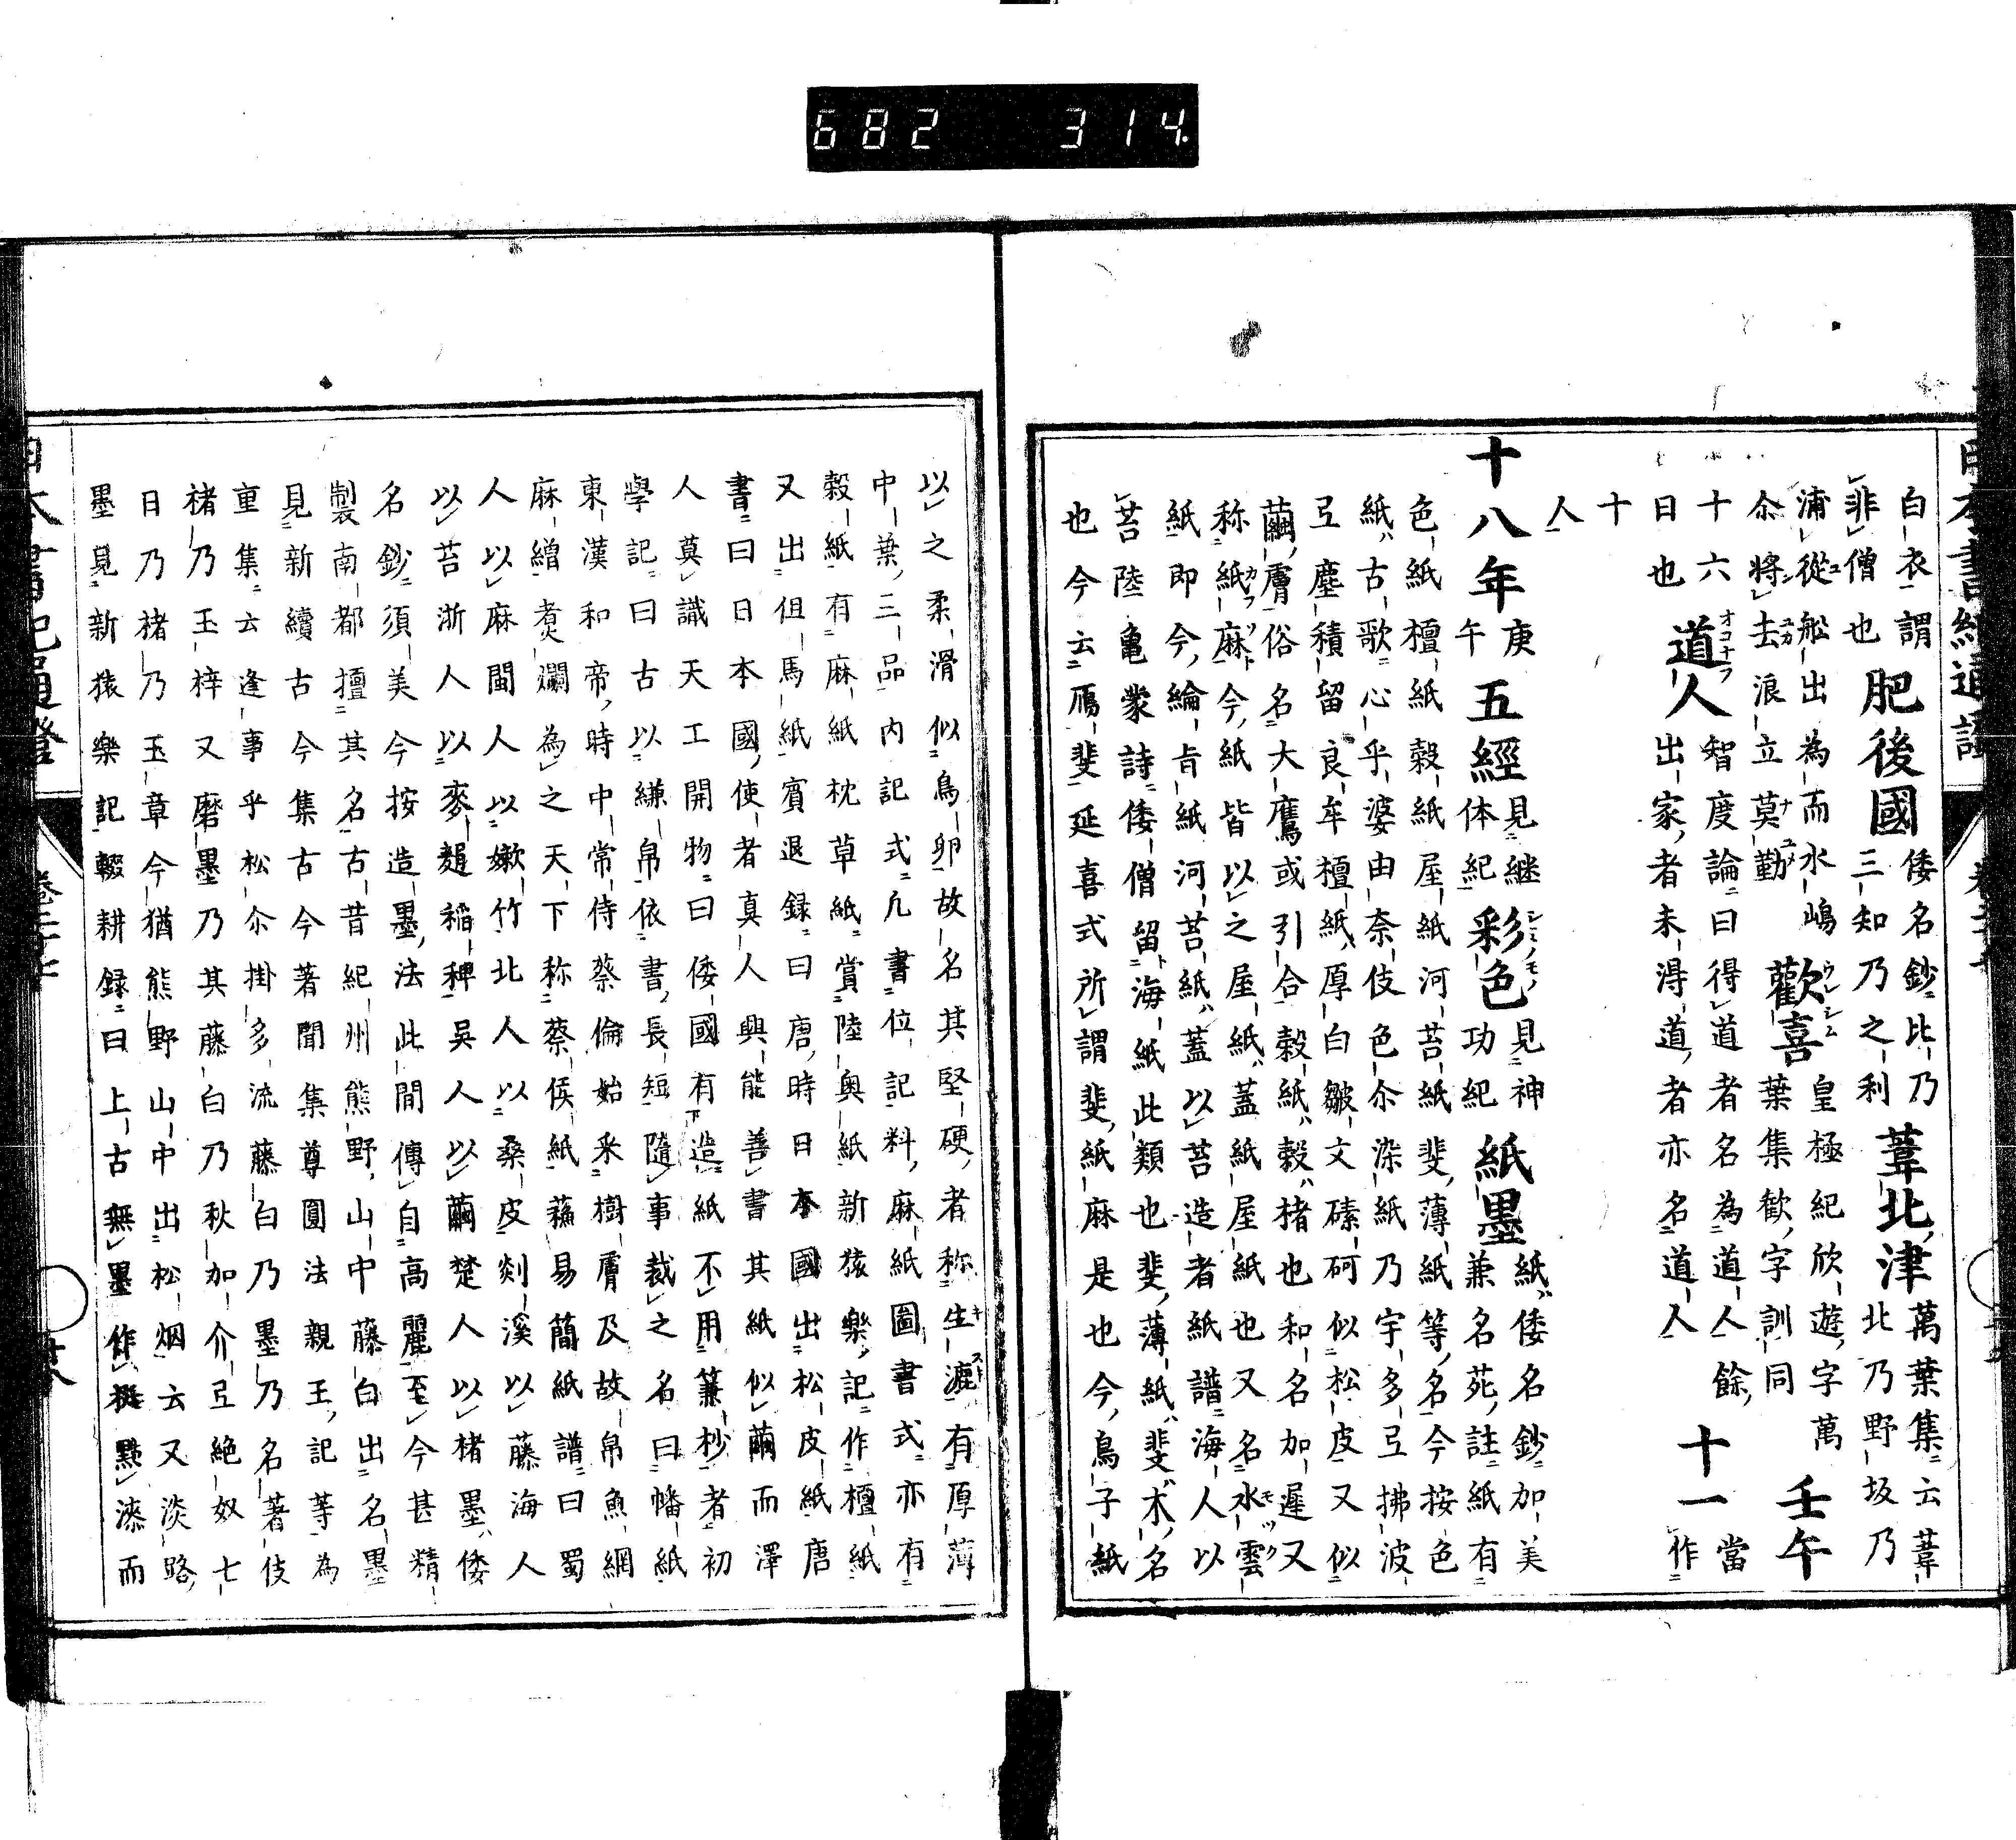 682 314.
日本書紀通證
白衣謂
非僧也
肥後國
倭名鈔比乃
三知乃之利
葦北津
萬葉集云葦
北乃野坂乃
浦從船出為而水嶋
尒將去浪立莫勤
歡喜
皇極紀欣遊字萬
葉集歓字訓同
壬午
十六
日也
道人
智度論曰得道者名為道人餘
出家者未得道者亦名道人
十一
當
作
十
人
十八年
庚
午
五經
見継
体紀
彩色
見神
功紀
紙墨
紙倭名鈔加美
兼名苑註紙有
色紙檀紙穀紙屋紙河苔紙斐薄紙等名今按色
紙古歌心乎婆由奈伎色尒染紙乃宇多弖拂波
弖塵積留良牟檀紙厚白皺文磠砢似松皮又似
繭膚俗名大鷹或引合穀紙穀楮也和名加遲又
称紙麻今紙皆以之屋紙蓋紙屋紙也又名水雲
紙即今綸旨紙河苔紙蓋以苔造者紙譜海人以
苔陸亀蒙詩倭僧留海紙此類也斐薄紙斐木名
也今云鴈斐延喜式所謂斐紙麻是也今鳥子紙
以之柔滑似鳥卵故名其堅硬者称生漉有厚薄
中葉三品内記式凢書位記料麻紙圖書式亦有
穀紙有麻紙枕草紙賞陸奥紙新猿樂記作檀紙
又出但馬紙賓退録曰唐時日本國出松皮紙唐
書曰日本國使者真人興能善書其紙似繭而澤
人莫識天工開物曰倭國有造紙不用簾抄者初
學記曰古以縑帛依書長短隨事裁之名曰幡紙
東漢和帝時中常侍蔡倫始釆樹膚及故帛魚網
麻繒煑爛為之天下称蔡侯紙蘓易簡紙譜曰蜀
人以麻閩人以嫰竹北人以桑皮剡溪以藤海人
以苔浙人以麥䴬稲稗吳人以繭楚人以楮墨倭
名鈔須美今按造墨法此間傳自高麗至今甚精
製南都擅其名古昔紀州熊野山中藤白出名墨
見新續古今集古今著聞集尊圓法親王記等為
重集云逢事乎松尒掛多流藤白乃墨乃名著伎
楮乃玉梓又磨墨乃其藤白乃秋加介弖絶奴七
日乃楮乃玉章今猶熊野山中出松烟云又淡路
墨見新猿樂記輟耕録曰上古無墨竹挺點漆而
日本書紀通證